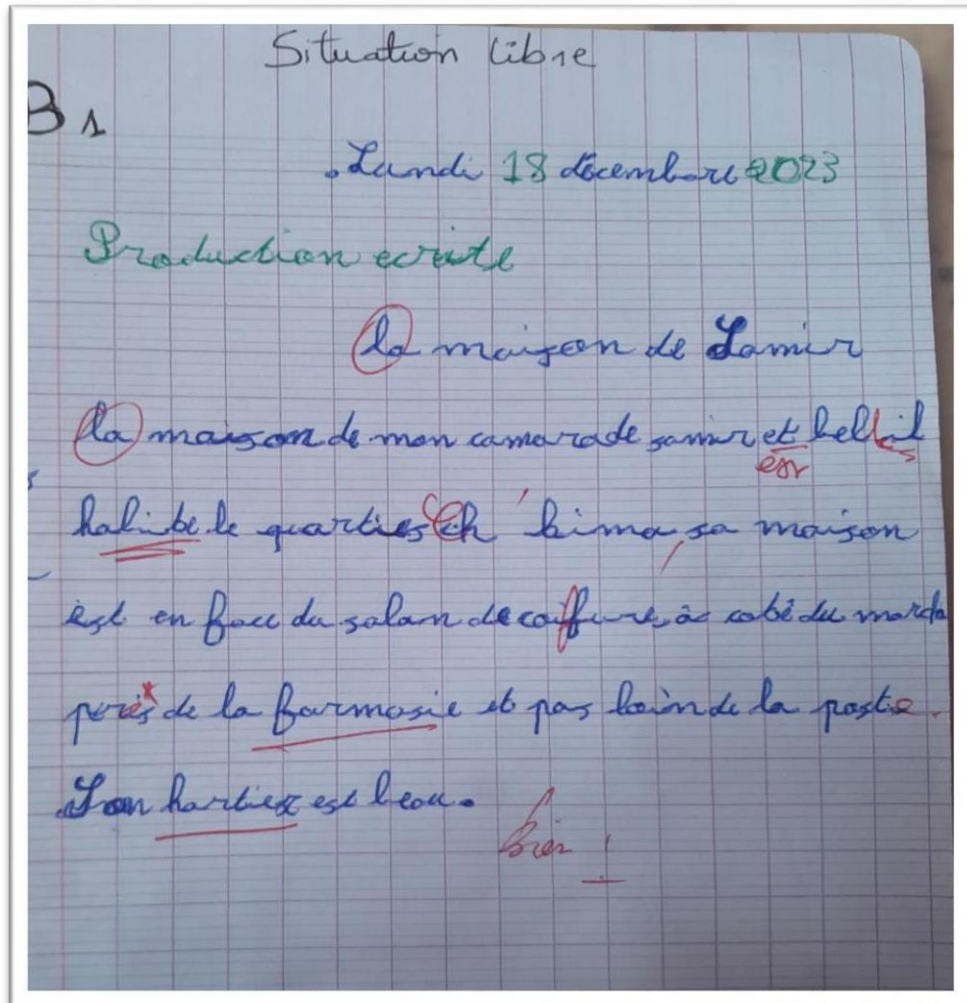 Situation libre
B1
Lundi 18 décembre 2023
Production ecrite
la maison de Samir
la maison de mon camarade samir et bell il
est
habite le quarties Ch bima, sa maison
est en face du salon de coiffure, à cobé du marcha
perés de la farmasie et pas loin de la poste.
Son hartier est beau.
bien !